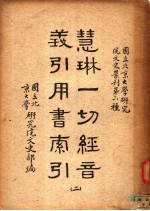 國立北京大學研究
院文史叢刊第六種
慧琳一切經音
義引用書索引
(二)
國立北
京大學
研究院文史部編